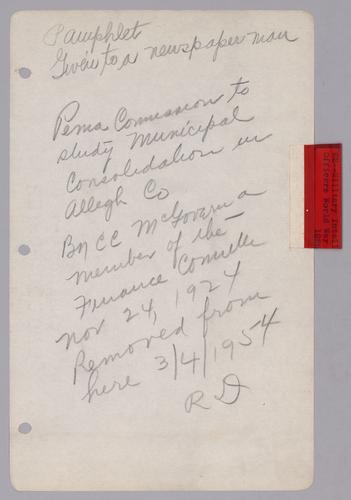 Pamphlet
Given to a newspaper man
Penna Commission to
study Municipal
Consolidation in
Allegh Co
By CC McGovern a
member of the
Finance Committee
Nov 24, 1924
Removed from
here 3/4/1954
R D
Officers World War